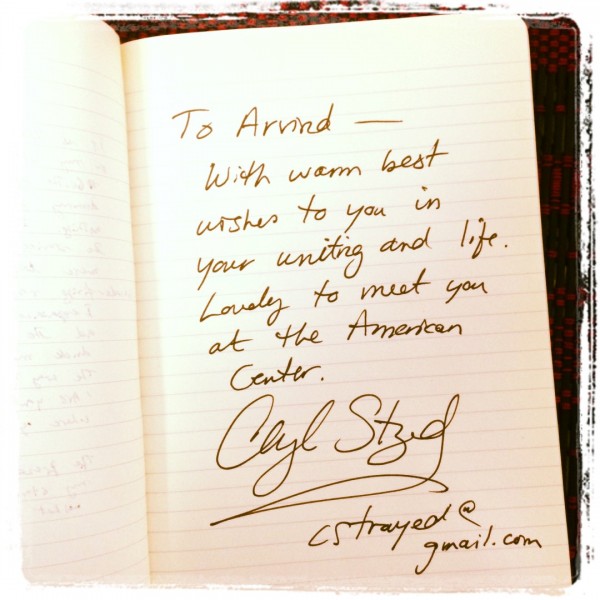 To Arvind —
With warm best
wishes to you in
your writing and life.
Lovely to meet you
at the American
Center.
Cheryl Strayed
cstrayed@
gmail.com